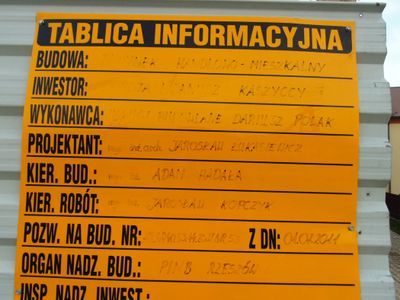 TABLICA INFORMACYJNA
BUDOWA: HANDLOWO-MIESZKALNY
INWESTOR: KASZYCCY
WYKONAWCA: DARIUSZ POLAK
PROJEKTANT: mgr inż. arch. JAROSŁAW ŁUKASIEWICZ
KIER. BUD.: mgr inż. ADAM HADAŁA
KIER. ROBÓT: mgr inż. JAROSŁAW KOPCZYK
POZW. NA BUD. NR: Z DN: 01.02.2011
ORGAN NADZ. BUD.: PINB RZESZÓW
INSP. NADZ. INWEST.: